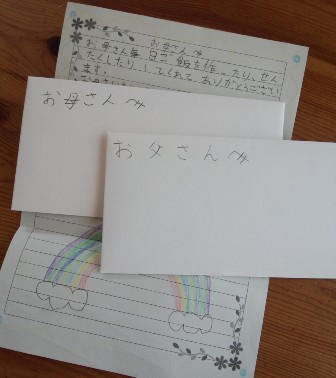 お母さんへ
お母さん毎日ご飯を作ったり、せん
たくしたりしてくれてありがとうござい
ます。
お母さんへ
お父さんへ